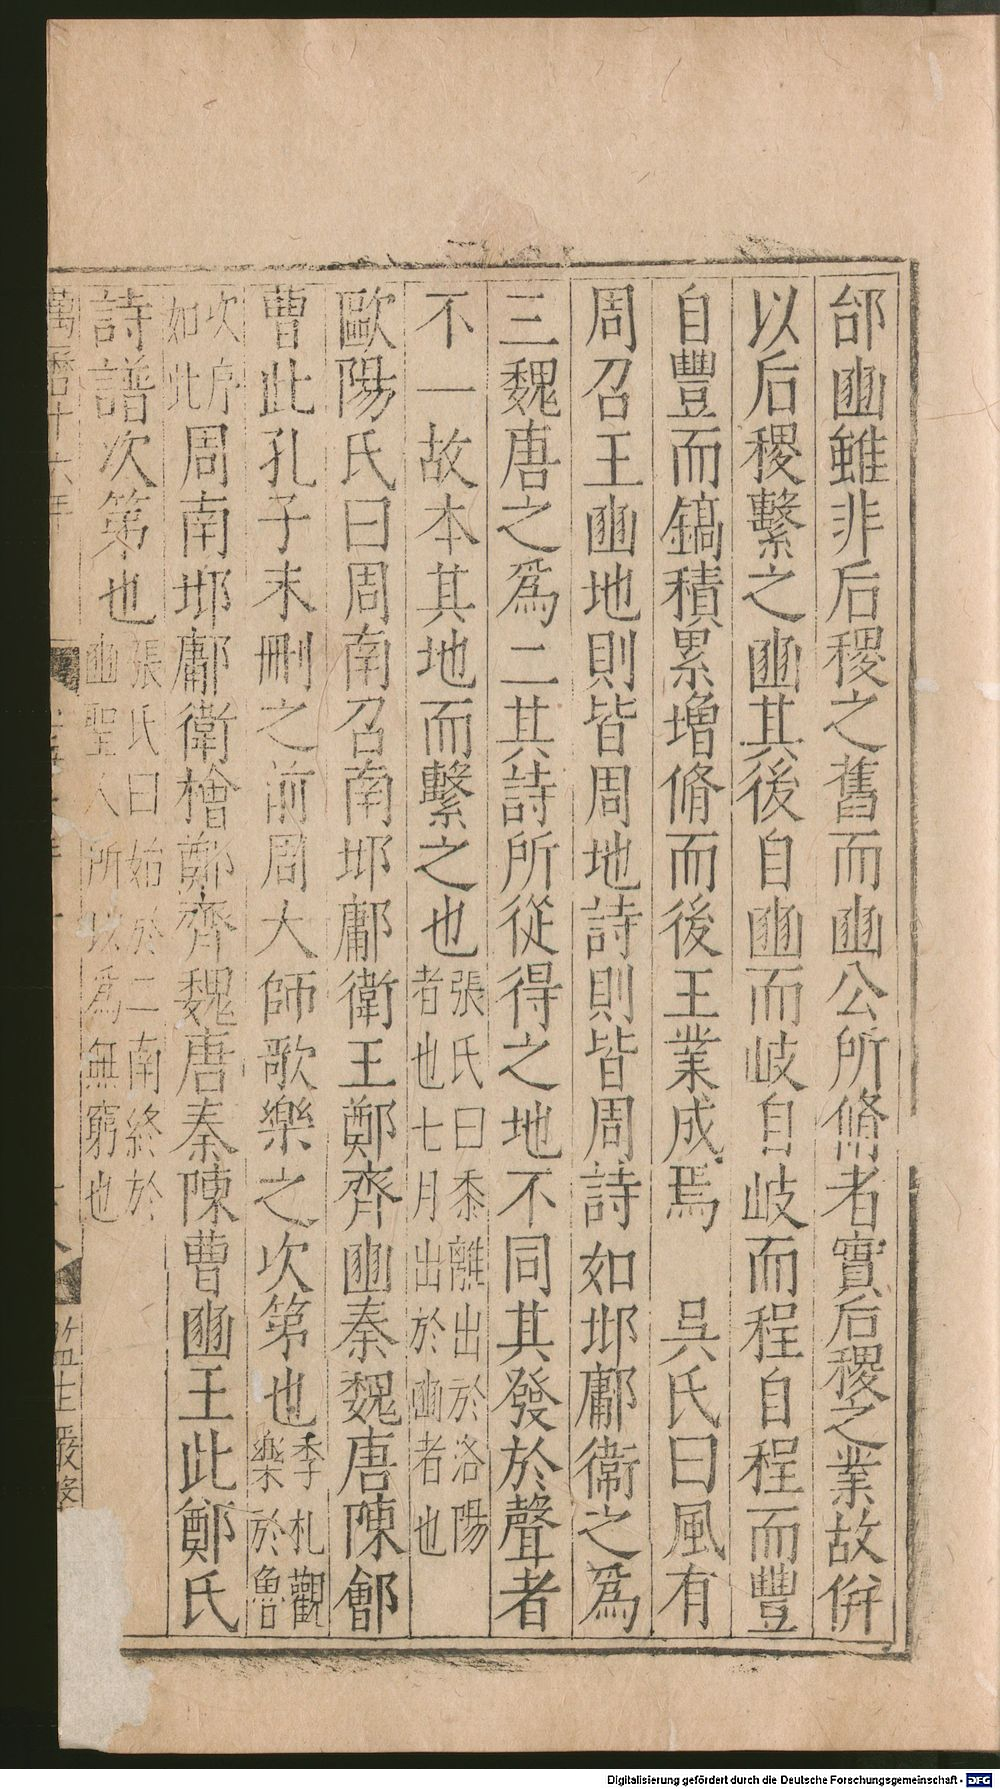 邰豳雖非后稷之舊而豳公所脩者實后稷之業故併
以后稷繫之豳其後自豳而岐自岐而程自程而豐
自豐而鎬積累増脩而後王業成焉　吳氏曰風有
周召王豳地則皆周地詩則皆周詩如邶鄘衛之為
三魏唐之為二其詩所從得之地不同其發於聲者
不一故本其地而繫之也張氏曰黍離出於洛陽
者也七月出於豳者也
歐陽氏曰周南召南邶鄘衛王鄭齊豳秦魏唐陳鄶
曹此孔子未刪之前周大師歌樂之次第也季札觀
樂於魯
次序
如此周南邶鄘衛檜鄭齊魏唐秦陳曹豳王此鄭氏
詩譜次第也張氏曰始於二南終於
豳聖人所以為無窮也
萬曆十六年
Digitalisierung gefördert durch die Deutsche Forschungsgemeinschaft - DFG